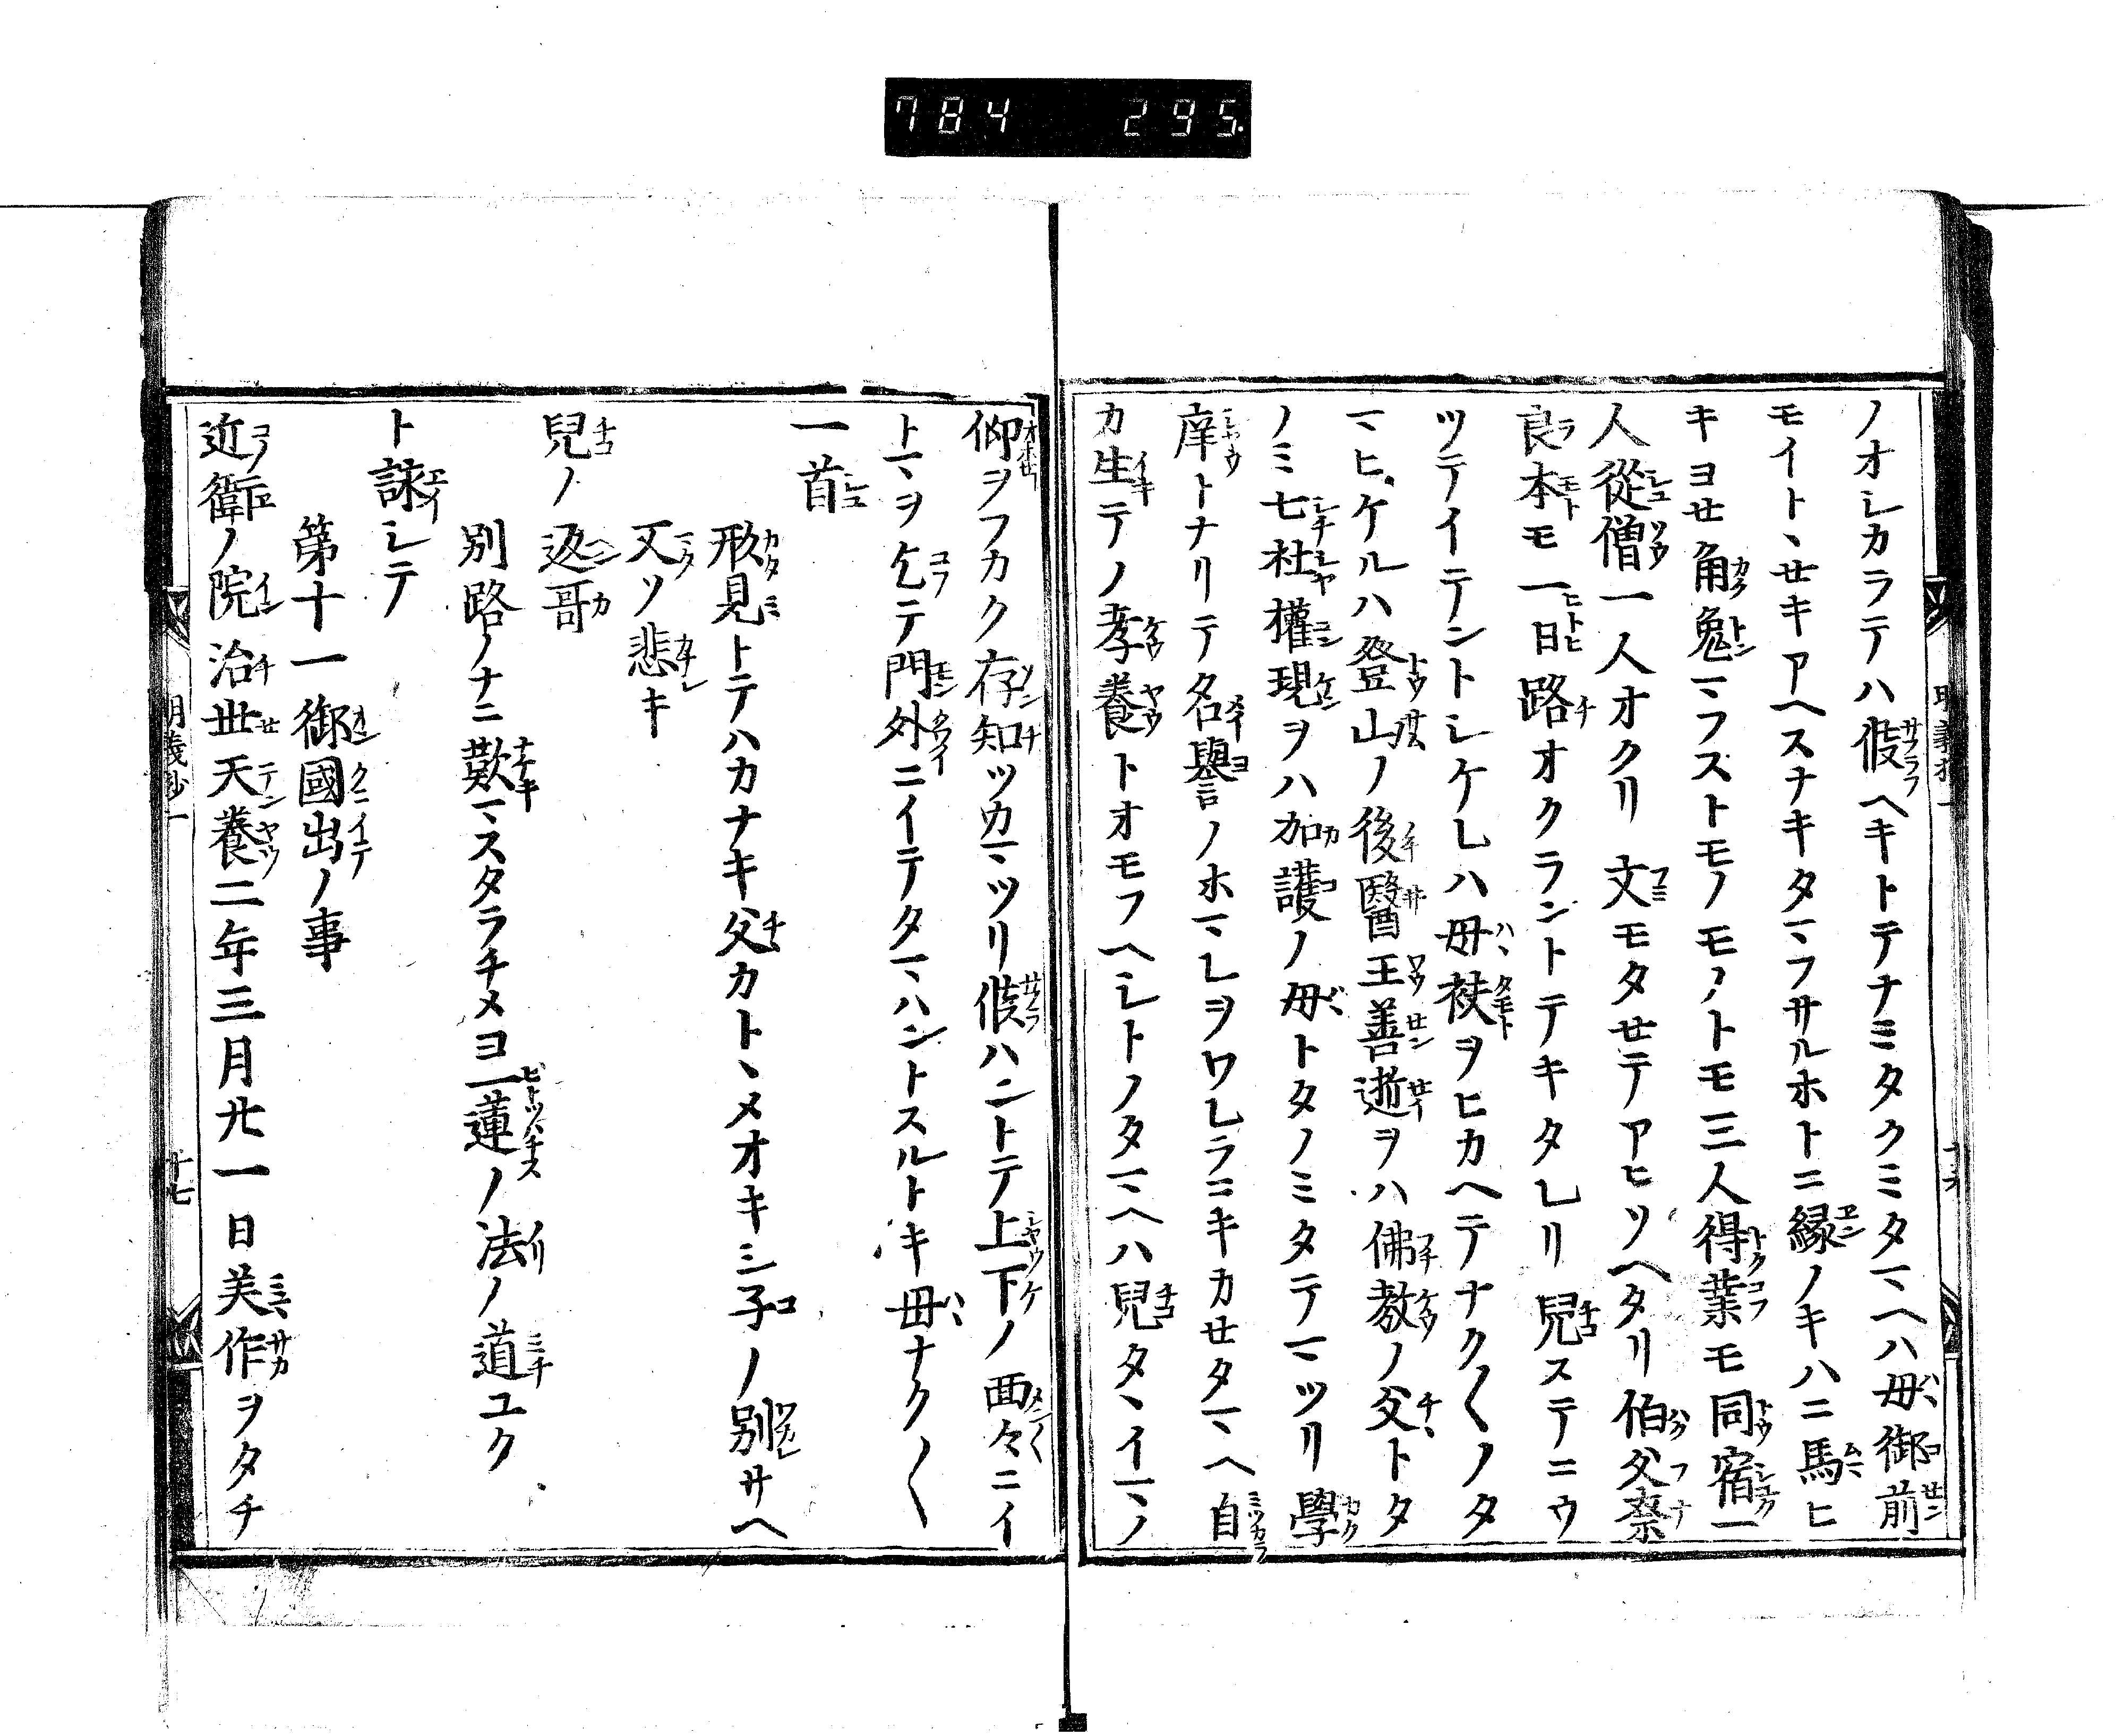 784 295
ノオシカラテハ候ヘキトテナミタクミタマヘハ母御前
モイトヽセキアヘスナキタマフサルホトニ縁ノキハニ馬ヒ
キヨセ角兔マフストモノモノトモ三人得業モ同宿一
人從僧一人オクリ文モタセテアヒソヘタリ伯父奈
良本モ一日路オクラントテキタレリ兒ステニウ
ツテイテントシケレハ母袂ヲヒカヘテナク〱ノタ
マヒケルハ登山ノ後醫王善逝ヲハ佛教ノ父トタ
ノミ七社權現ヲハ加護ノ母トタノミタテマツリ學
庠トナリテ名譽ノホマレヲワレラニキカセタマヘ自
カ生テノ孝養トオモフヘシトノタマヘハ兒タヽイマノ
仰ヲフカク存知ツカマツリ候ハントテ上下ノ面々ニイ
トマヲ乞テ門外ニイテタマハントスルトキ母ナク〱
一首
形見トテハカナキ父カトヽメオキシ子ノ別サヘ
又ソ悲キ
兒ノ返哥
別路ノナニ歎マスタラチメヨ一蓮ノ法ノ道ユク
ト詠シテ
第十一御國出ノ事
近衛ノ院治世天養二年三月廿一日美作ヲタチ
明義抄一
十七